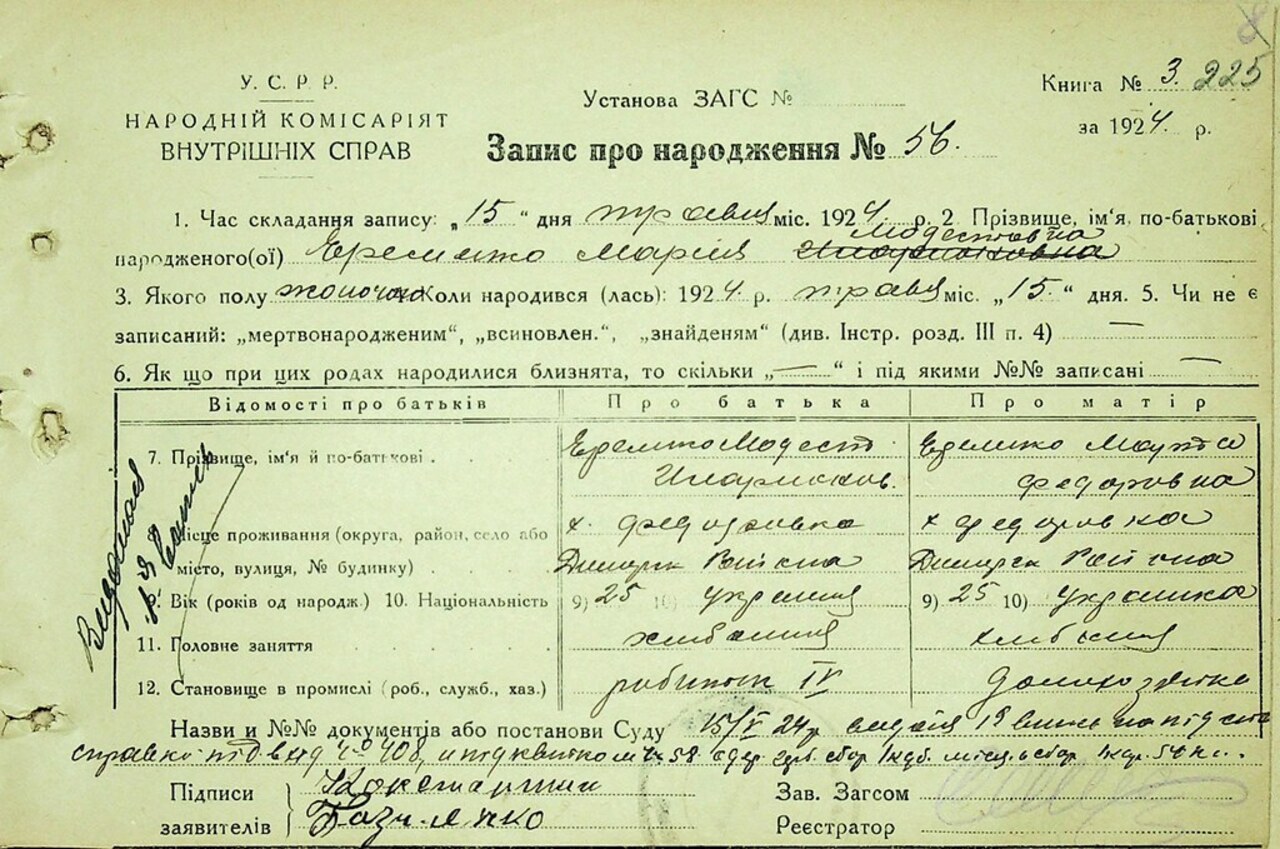 У. С. Р. Р.
НАРОДНІЙ КОМІСАРІЯТ
ВНУТРІШНІХ СПРАВ
Установа ЗАГС №
Книга № 3. 225
за 1924. р.
Запис про народження № 56.
1. Час складання запису: „15“ дня травня міс. 1924 р. 2 Прізвище, ім'я, по-батькові
Модестовна
народженого(ої) Еременко Марія
3. Якого полу жоночого Коли народився (лась): 1924 р. травня міс. „15“ дня. 5. Чи не є
записаний: „мертвонародженим“, „всиновлен.“, „знайденям“ (див. Інстр. розд. III п. 4) —
6. Як що при цих родах народилися близнята, то скільки „—“ і під якими №№ записані —
Відомості про батьків Про батька Про матір
7. Прізвище, ім'я й по-батькові Еременко Модест Еременко Марта
Федоровна
Місце проживання (округа, район, село або х. Федоровка х Федоровка
місто, вулиця, № будинку)
9. Вік (років од народж.) 10. Національність 9) 25 10) українец 9) 25 10) українка
11. Головне заняття
12. Становище в промислі (роб., служб., хаз.) робітник IV домохозяйка
Назви и №№ документів або постанови Суду 15/V 24 р.
справки під 408, 58
Підписи Константин
заявителів
Зав. Загсом
Реєстратор